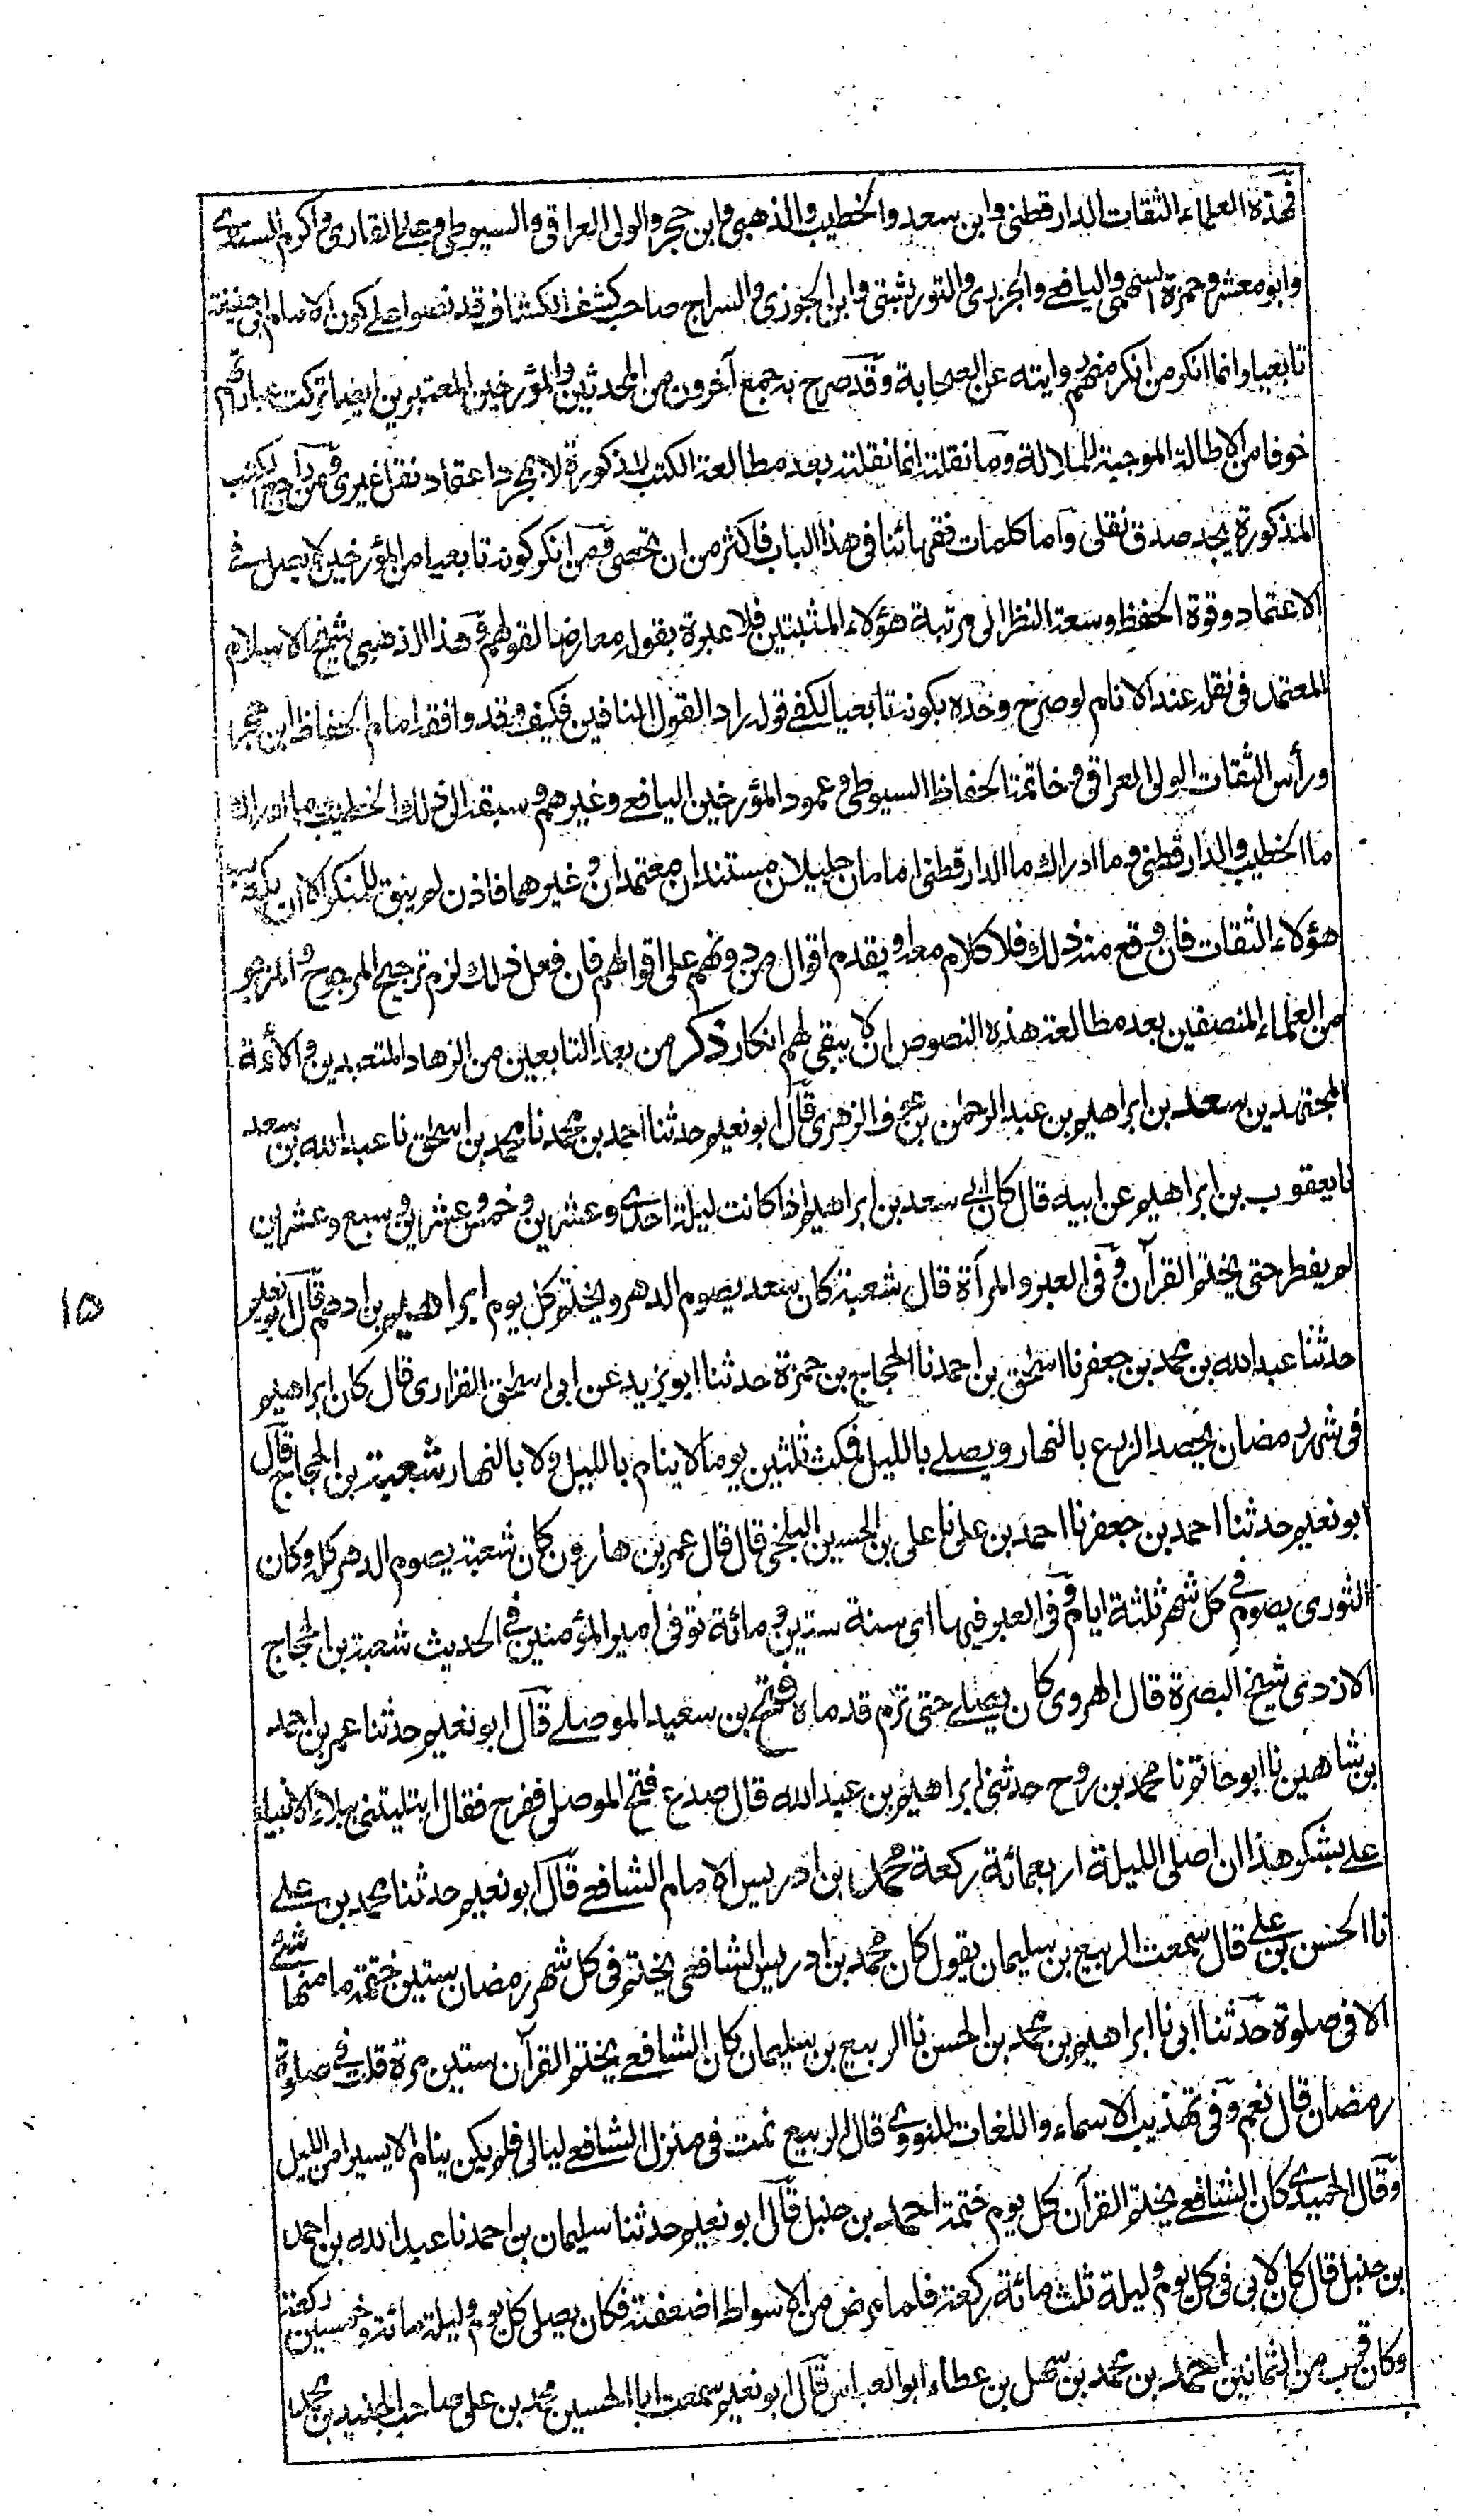 فهذه العلماء الثقات الدارقطني وابن سعد والخطيب والذهبي وابن حجر والولي العراقي والسيوطي وعلي القاري واكرم السندي
وابو معشر وحمزة السهمي واليافعي والجزري والتوربشتي وابن الجوزي والسراج صاحب كشف الكشاف قد نصوا على كون الامام ابي حنيفة
تابعيا وانما انكر من انكر منهم روايته عن الصحابة وقد صرح به جمع آخرون من المحدثين والمؤرخين المعتبرين ايضا تركت عباراتهم
خوفا من الاطالة الموجبة للملالة وما نقلته انما نقلته بعد مطالعة الكتب المذكورة لا بمجرد اعتماد نقل غيري ومن راجع الكتب
المذكورة يجد صدق نقلي واما كلمات فقهائنا في هذا الباب فاكثر من ان تحصى فمن انكر كونه تابعيا من المؤرخين لا يصل في
الاعتماد وقوة الحفظ وسعة النظر الى مرتبة هؤلاء المثبتين فلا عبرة بقوله معارضا لقولهم وهذا الذهبي شيخ الاسلام
المعتمد في نقله عند الانام لو صرح وحده بكونه تابعيا لكفى قوله رادا لقول النافين فكيف وقد وافقه امام الحفاظ ابن حجر
ورأس الثقات الولي العراقي وخاتمة الحفاظ السيوطي وعمود المؤرخين اليافعي وغيرهم وسبقه الى ذلك الخطيب وما ادراك
ما الخطيب والدارقطني وما ادراك ما الدارقطني امامان جليلان مستندان معتمدان وغيرهما فاذن لم يبق للمنكر الا ان يكذب
هؤلاء الثقات فان وقع منه ذلك فلا كلام معه او يقدم اقوال من دونهم على اقوالهم فان فعل ذلك لزم ترجيح المرجوح والمرجو
من العلماء المنصفين بعد مطالعة هذه النصوص ان لا يبقى لهم انكار ذكر من بعد التابعين من الزهاد المتعبدين والأئمة
المجتهدين سعد بن ابراهيم بن عبد الرحمن بن عوف الزهري قال ابو نعيم حدثنا احمد بن محمد نا محمد بن اسحق نا عبد الله بن سعد
نا يعقوب بن ابراهيم عن ابيه قال كان ابي سعد بن ابراهيم اذا كانت ليلة احدى وعشرين وخمس وعشرين وسبع وعشرين
لم يفطر حتى يختم القرآن وفي العبر والمرآة قال شعبة كان سعد يصوم الدهر ويختم كل يوم ابراهيم بن ادهم قال ابو نعيم
حدثنا عبد الله بن محمد بن جعفر نا اسحق بن احمد نا الحجاج بن حمزة حدثنا ابو يزيد عن ابي اسحق الفزاري قال كان ابراهيم
في شهر رمضان يحصد الزرع بالنهار ويصلي بالليل فمكث ثلثين يوما لا ينام بالليل ولا بالنهار شعبة بن الحجاج قال
ابو نعيم حدثنا احمد بن جعفر نا احمد بن علي نا علي بن الحسين البلخي قال قال عمر بن هارون كان شعبة يصوم الدهر كله وكان
الثوري يصوم في كل شهر ثلثة ايام وفي العبر فيها اي سنة ستين ومائة توفي امير المؤمنين في الحديث شعبة بن الحجاج
الازدي شيخ البصرة قال الهروي كان يصلي حتى ترم قدماه فتح بن سعيد الموصلي قال ابو نعيم حدثنا عمر بن احمد
بن شاهين نا ابو حاتم نا محمد بن روح حدثني ابراهيم بن عبد الله قال صدع فتح الموصلي ففرح فقال ابتليتني ببلاء الانبياء
علي بشكر هذا ان اصلي الليلة اربعمائة ركعة محمد بن ادريس الامام الشافعي قال ابو نعيم حدثنا محمد بن علي
نا الحسن بن علي قال سمعت الربيع بن سليمان يقول كان محمد بن ادريس الشافعي يختم في كل شهر رمضان ستين ختمة ما منها شئ
الا في صلوة حدثنا ابي نا ابراهيم بن محمد بن الحسن نا الربيع بن سليمان كان الشافعي يختم القرآن ستين مرة قلت في صلوة
رمضان قال نعم وفي تهذيب الاسماء واللغات للنووي قال الربيع نمت في منزل الشافعي ليالي فلم يكن ينام الا يسيرا من الليل
وقال الحميدي كان الشافعي يختم القرآن كل يوم ختمة احمد بن حنبل قال ابو نعيم حدثنا سليمان بن احمد نا عبد الله بن احمد
بن حنبل قال كان لابي في كل يوم وليلة ثلث مائة ركعة فلما مرض من الاسواط اضعفته فكان يصلي كل يوم وليلة مائة وخمسين ركعة
وكان قرب من الثمانين احمد بن محمد بن سهل بن عطاء ابو العباس قال ابو نعيم سمعت ابا الحسين محمد بن علي صاحب الجنيد بن محمد
١٥